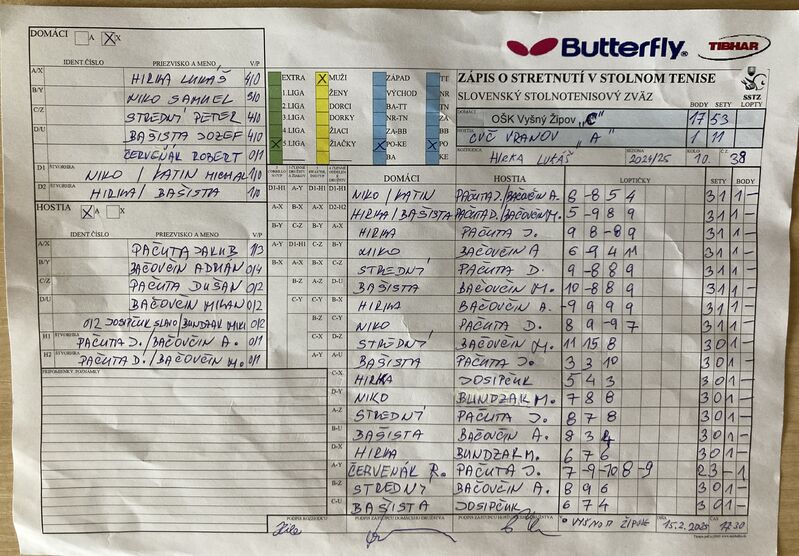 DOMÁCI A X
IDENT ČÍSLO PRIEZVISKO A MENO V/P
A/X HIRKA LUKÁŠ 4/0
B/Y NIKO SAMUEL 3/0
C/Z STREDNÝ PETER 4/0
D/U BAŠISTA JOZEF 4/0
ČERVEŇÁK ROBERT 0/1
D1 ŠTVORHRA NIKO / KATIN MICHAL 1/0
D2 HIRKA / BAŠISTA 1/0
HOSTIA A X
IDENT ČÍSLO PRIEZVISKO A MENO V/P
A/X PAČUTA JAKUB 1/3
B/Y BAČOVČIN ADRIÁN 0/4
C/Z PAČUTA DUŠÁN 0/2
D/U BAČOVČIN MILAN 0/2
0/2 JOSIPČUK SLAVO/BUNDZAK MIKI 0/2
H1 ŠTVORHRA PAČUTA J. / BAČOVČIN A. 0/1
H2 ŠTVORHRA PAČUTA D. / BAČOVČIN M. 0/1
PRIPOMIENKY, POZNÁMKY
EXTRA
1.LIGA
2.LIGA
3.LIGA
4.LIGA
5.LIGA
MUŽI
ŽENY
DORCI
DORKY
ŽIACI
ŽIAČKY
ZÁPAD TT
VÝCHOD NR
BA-TT TN
NR-TN ZA
ZA-BB BB
PO-KE PO
BA KE
Butterfly
TIBHAR
ZÁPIS O STRETNUTÍ V STOLNOM TENISE
SLOVENSKÝ STOLNOTENISOVÝ ZVÄZ
SSTZ
BODY SETY LOPTY
DOMÁCI OŠK Vyšný Žipov "C" 17 53
HOSTIA CVČ VRANOV "A" 1 11
ROZHODCA HIRKA LUKÁŠ 2024/25 10. Č.Z. 38
DOMÁCI HOSTIA LOPTIČKY SETY BODY
D1-H1 NIKO / KATIN PAČUTA J./BAČOVČIN A. 8 -8 5 4 3 1 1 -
D2-H2 HIRKA / BAŠISTA PAČUTA D./BAČOVČIN M. 5 -9 8 9 3 1 1 -
HIRKA PAČUTA J. 9 8 -8 9 3 1 1 -
NIKO BAČOVČIN A 6 -9 4 11 3 1 1 -
STREDNÝ PAČUTA D. 9 -8 8 9 3 1 1 -
BAŠISTA BAČOVČIN M. 10 -8 8 9 3 1 1 -
HIRKA BAČOVČIN A. -9 9 9 9 3 1 1 -
NIKO PAČUTA D. 8 9 -9 7 3 1 1 -
STREDNÝ BAČOVČIN M. 11 15 8 3 0 1 -
BAŠISTA PAČUTA J. 3 3 10 3 0 1 -
C-X HIRKA JOSIPČUK 5 4 3 3 0 1 -
D-Y NIKO BUNDZAK M. 7 8 8 3 0 1 -
A-Z STREDNÝ PAČUTA J. 8 7 8 3 0 1 -
B-U BAŠISTA BAČOVČIN A. 8 3 4 3 0 1 -
D-X HIRKA BUNDZAK M. 6 7 6 3 0 1 -
A-Y ČERVENÁK R. PAČUTA J. 7 -9 -10 8 -9 2 3 - 1
B-Z STREDNÝ BAČOVČIN A. 8 9 6 3 0 1 -
C-U BAŠISTA JOSIPČUK 6 7 4 3 0 1 -
PODPIS ROZHODCU PODPIS ZÁSTUPCU DOMÁCEHO DRUŽSTVA PODPIS ZÁSTUPCU HOSŤUJÚCEHO DRUŽSTVA
VYŠNOM ŽIPOVE 15.2.2025 17:30